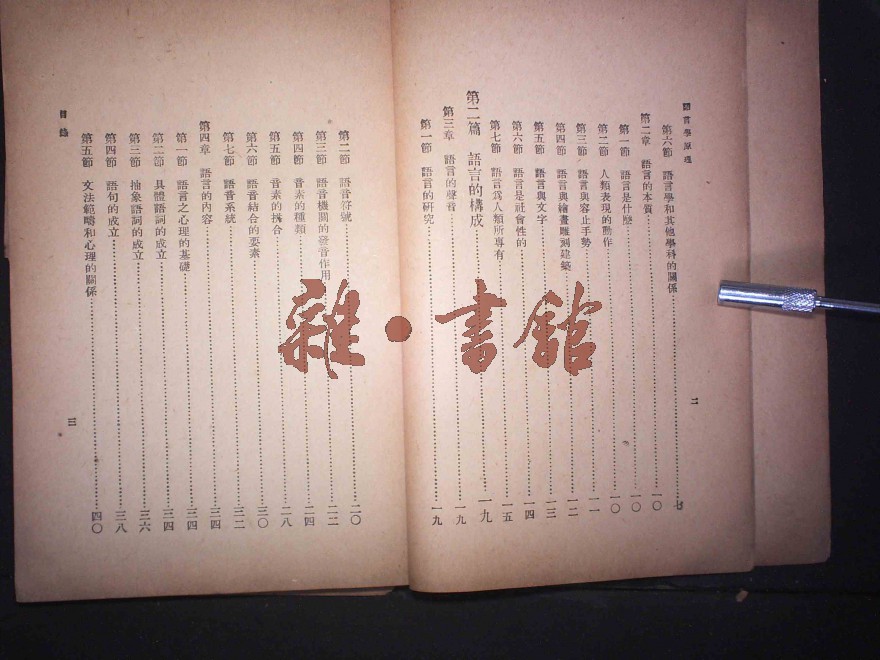 語言學原理
第六節 語言學和其他學科的關係 七
第二章 語言的本質 一〇
第一節 語言是什麼 一〇
第二節 人類表現的動作 一〇
第三節 語言與容止手勢 一一
第四節 語言與繪畫雕刻建築 一二
第五節 語言與文字 一三
第六節 語言是社會性的 一四
第七節 語言為人類所專有 一五
第二篇 語言的構成 一九
第三章 語言的聲音 一九
第一節 語言的研究 一九
二
第二節 語音符號 二〇
第三節 語音機關的發音作用 二二
第四節 音素的種類 二四
第五節 音素的拼合 二八
第六節 語音結合的要素 三〇
第七節 語音系統 三二
第四章 語言的內容 三四
第一節 語言之心理的基礎 三四
第二節 具體語詞的成立 三四
第三節 抽象語詞的成立 三六
第四節 語句的成立 三八
第五節 文法範疇和心理的關係 四〇
目錄
三
雜·書館